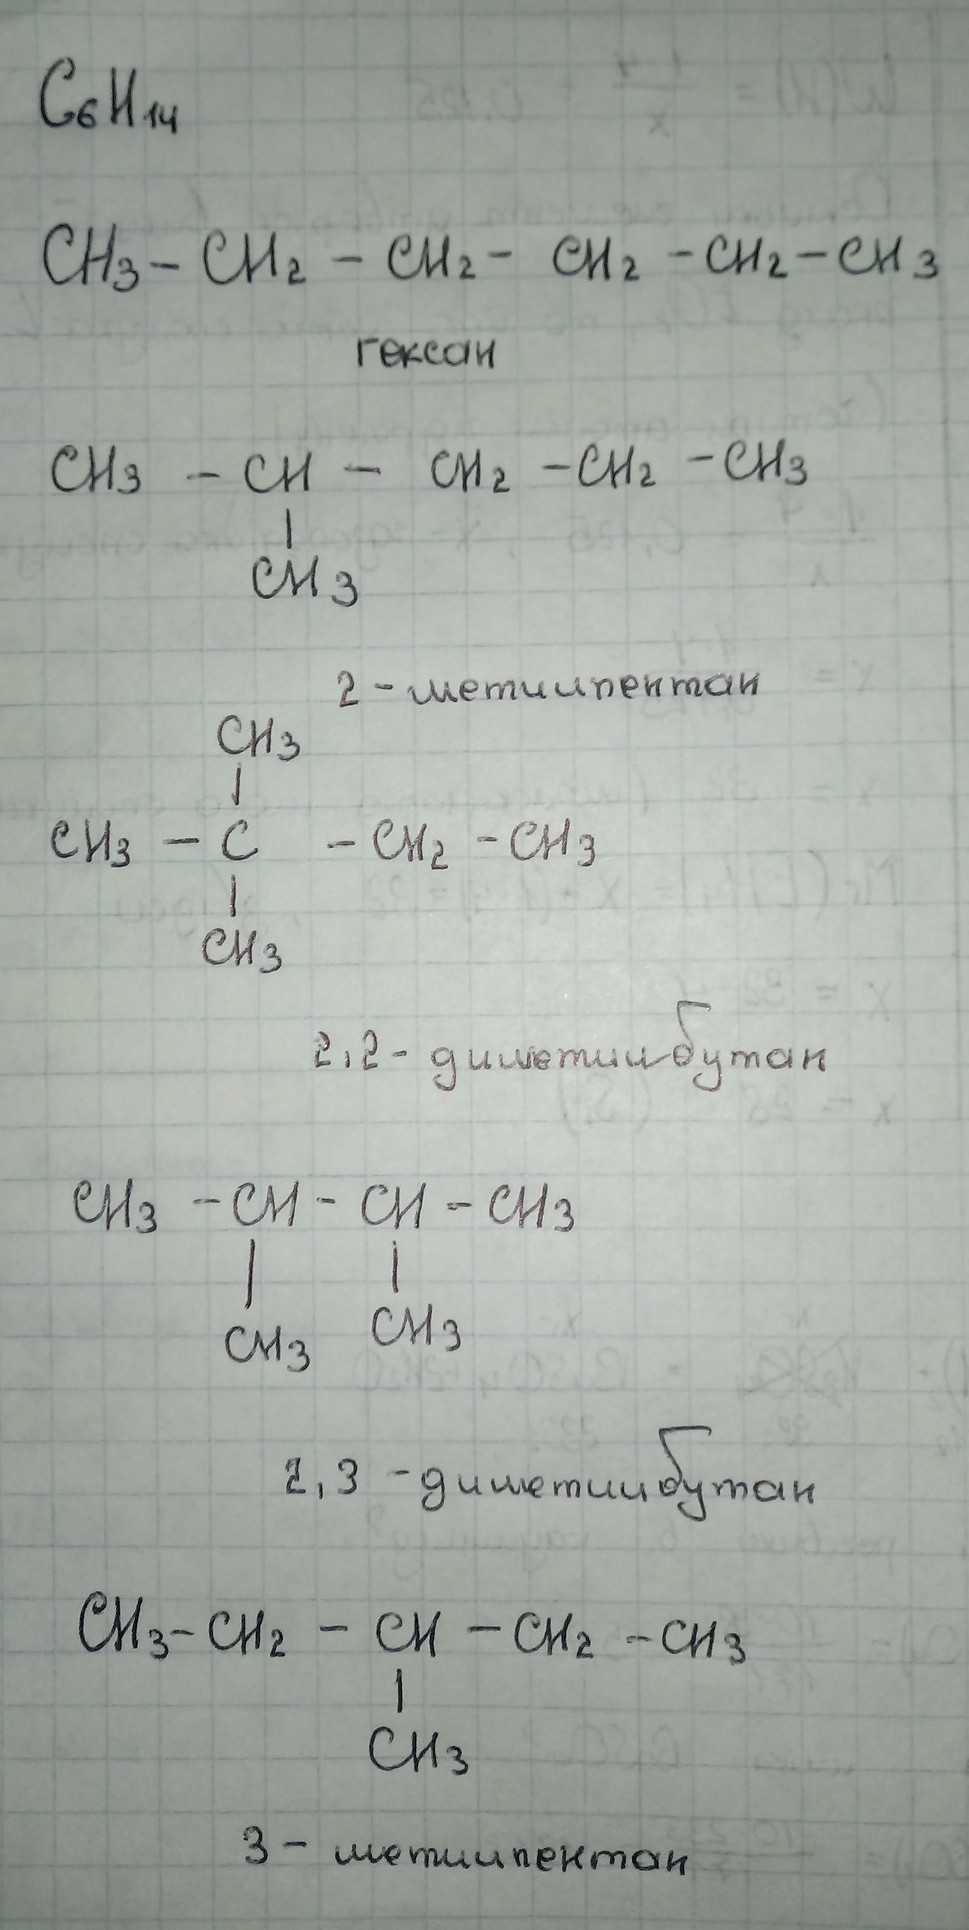 C₆H₁₄
CH₃ – CH₂ – CH₂ – CH₂ – CH₂ – CH₃
гексан
CH₃ – CH – CH₂ – CH₂ – CH₃
|
CH₃
2 – метилпентан
CH₃
|
CH₃ – C – CH₂ – CH₃
|
CH₃
2,2 – диметилбутан
CH₃ – CH – CH – CH₃
| |
CH₃ CH₃
2,3 – диметилбутан
CH₃ – CH₂ – CH – CH₂ – CH₃
|
CH₃
3 – метилпентан